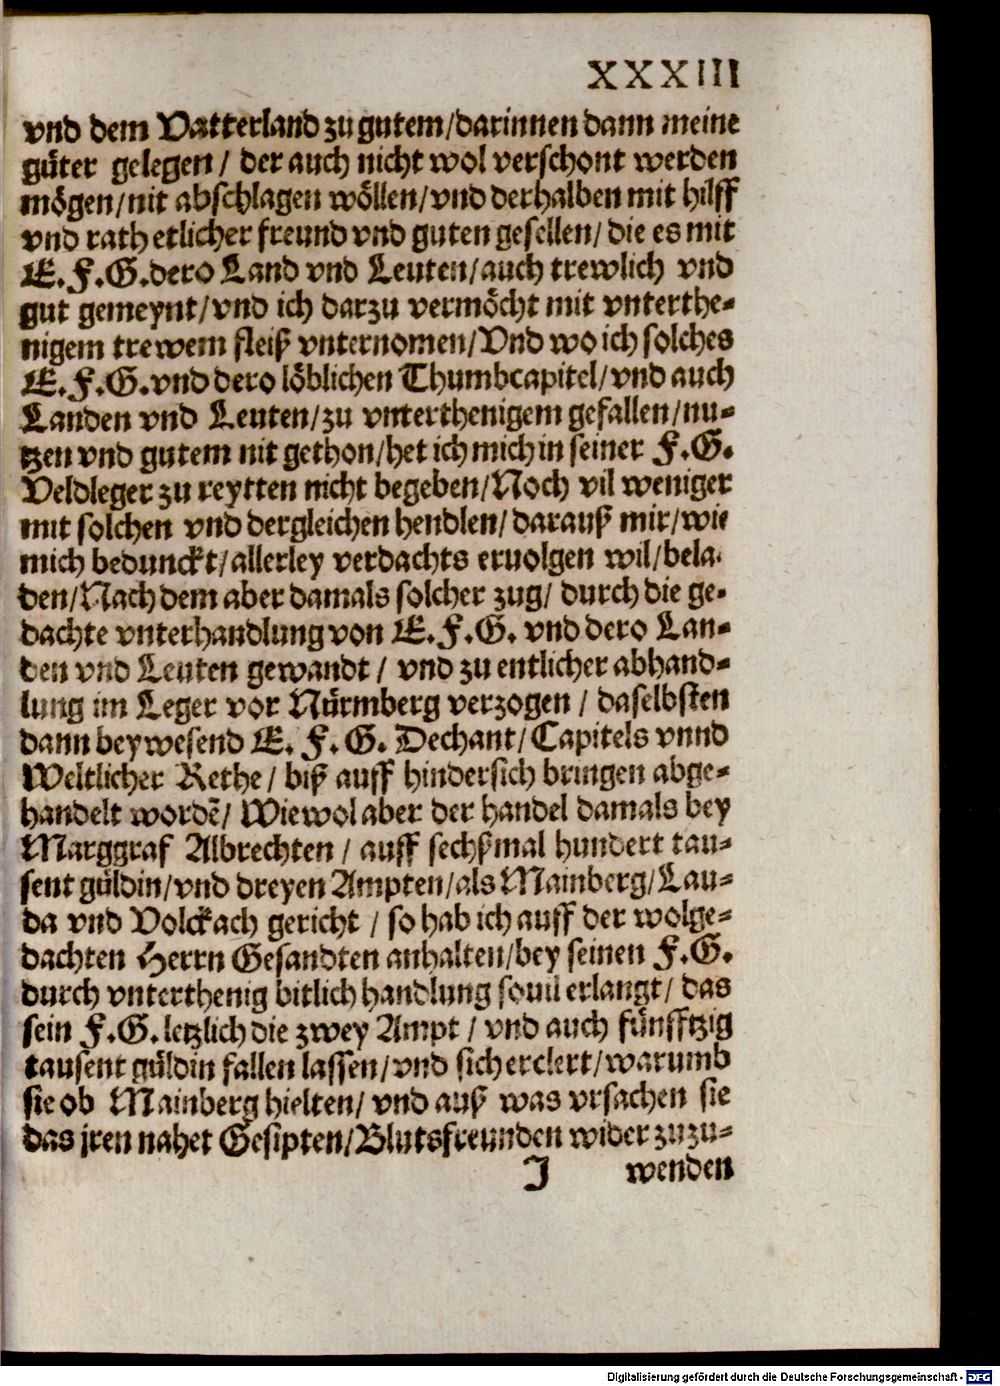 XXXIII
vnd dem Vatterland zu gutem/darinnen dann meine
güter gelegen/ der auch nicht wol verschont werden
mögen/nit abschlagen wöllen/vnd derhalben mit hilff
vnd rath etlicher freund vnd guten gesellen/ die es mit
E. F. G. dero Land vnd Leuten/auch trewlich vnd
gut gemeynt/vnd ich darzu vermöcht mit vnterthe-
nigem trewem fleiß vnternomen/Vnd wo ich solches
E. F. G. vnd dero löblichen Thumbcapitel/vnd auch
Landen vnd Leuten/zu vnterthenigem gefallen/nu-
tzen vnd gutem nit gethon/het ich mich in seiner F. G.
Veldleger zu reytten nicht begeben/Noch vil weniger
mit solchen vnd dergleichen hendlen/darauß mir/wie
mich bedunckt/allerley verdachts eruolgen wil/bela-
den/Nach dem aber damals solcher zug/ durch die ge-
dachte vnterhandlung von E. F. G. vnd dero Lan-
den vnd Leuten gewandt / vnd zu entlicher abhand-
lung im Leger vor Nürmberg verzogen / daselbsten
dann beywesend E. F. G. Dechant/Capitels vnnd
Weltlicher Rethe/ biß auff hindersich bringen abge-
handelt wordē/ Wiewol aber der handel damals bey
Marggraf Albrechten / auff sechßmal hundert tau-
sent güldin/vnd dreyen Ampten/als Mainberg/Lau-
da vnd Volckach gericht / so hab ich auff der wolge-
dachten Herrn Gesandten anhalten/bey seinen F. G.
durch vnterthenig bitlich handlung souil erlangt/ das
sein F. G. letzlich die zwey Ampt / vnd auch fünfftzig
tausent güldin fallen lassen/vnd sich erclert/warumb
sie ob Mainberg hielten/ vnd auß was vrsachen sie
das jren nahet Gesipten/Blutsfreunden wider zuzu-
J wenden
Digitalisierung gefördert durch die Deutsche Forschungsgemeinschaft - DFG